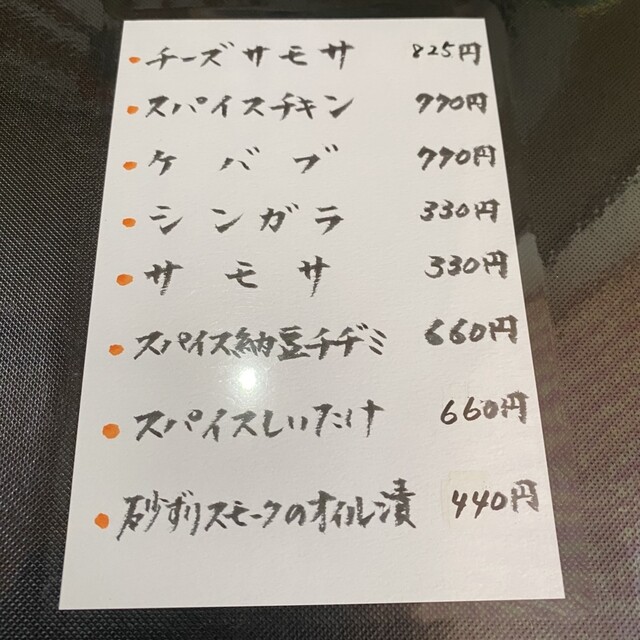 チーズサモサ 825円
スパイスチキン 770円
ケバブ 770円
シンガラ 330円
サモサ 330円
スパイス納豆チヂミ 660円
スパイスしいたけ 660円
砂ずりスモークのオイル漬 440円